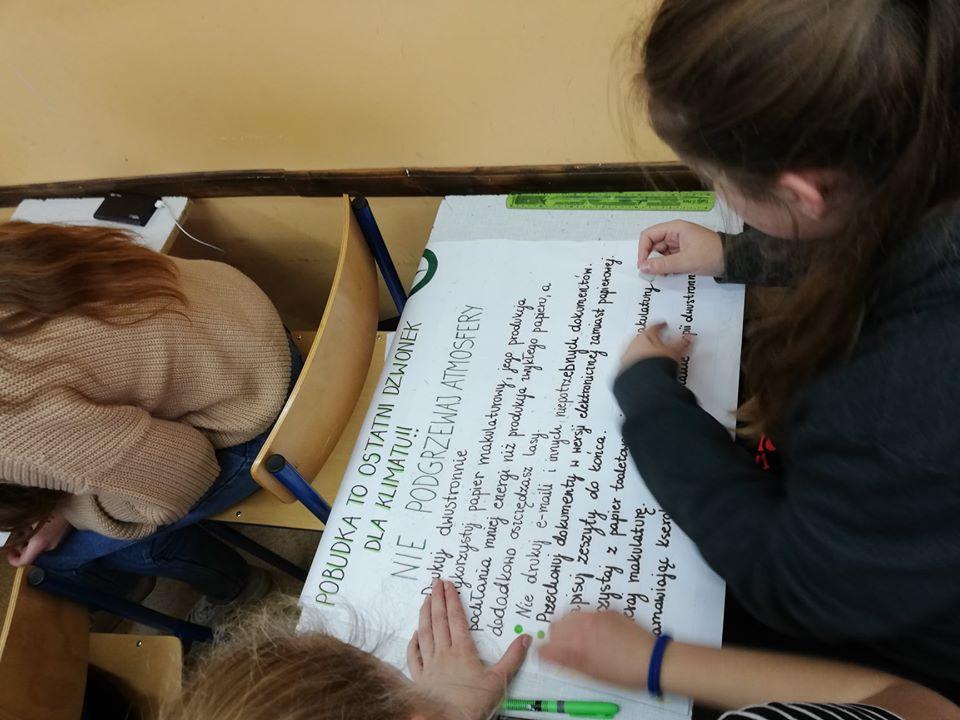 POBUDKA TO OSTATNI DZWONEK
DLA KLIMATU!!
NIE PODGRZEWAJ ATMOSFERY
Drukuj dwustronnie
Wykorzystuj papier makulaturowy, jego produkcja
pochłania mniej energi niż produkcja zwykłego papieru, a
dodadkowo oszczędzasz lasy.
Nie drukuj e-maili i innych niepotrzebnych dokumentów.
Przechowuj dokumenty w wersji elektronicznej zamiast papierowej.
zeszyty do końca
z papier
makulaturę